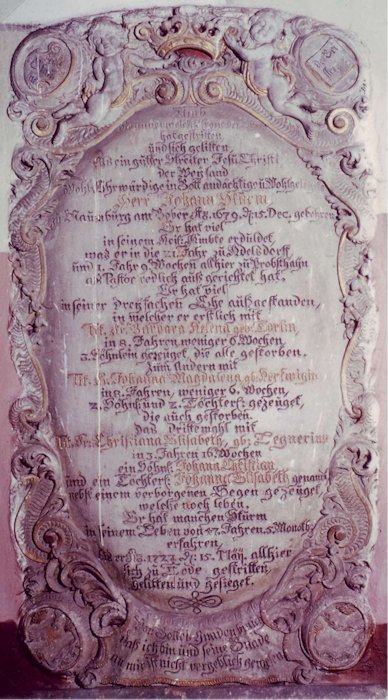 hatgestritten
und sich gelitten.
Als ein gutter Streiter Jesu Christi
der Weiland
Wohl Ehrwürdige in Gott andächtige u: Wohlgelehrte
Herr Johann Sturm
zu Naumburg am Bober Aō. 1679. d. 15. Dec. gebohren
Er hat viel
in seinem Heil: Ambte erduldet,
was er in die 21. Jahr zu Adelsdorff
und 1. Jahr 9. Wochen allhier zu Probsthahn
als Pastor redlich auß gerichtet hat.
Er hat viel
in seiner Dreyfachen Ehe außgestanden,
in welcher er erstlich mit
Tit. Fr. Barbara Helena geb:
in 8. Jahren weniger 6. Wochen,
3. Söhnlein gezeuget, die alle gestorben.
Zum andern mit
Tit. Fr. Johanna Magdalena geb: Hertwigin
in 8. Jahren, weniger 6. Wochen,
2. Söhnl: und 2. Töchterl: gezeuget,
die auch gestorben.
Das dritte mahl mit
Tit. Fr. Christiana Elisabeth, gb: Tegnerin
in 3. Jahren 16. Wochen
ein Söhnl: Johann Christian
und ein Töchterl: Johanna Elisabeth genannt
nebst einem verborgenen Segen gezeuget,
welche noch leben.
Er hat manchen Sturm
in seinem Leben von 47. Jahren 5. Monath:
erfahren,
biß er Aō. 1727. d. 15. Maÿ. allhier
sich zu Tode gestritten
gelitten und gesieget.
Von Gottes Gnaden bin ich
daß ich bin und seine Gnade
an mir ist nicht vergeblich gewesen